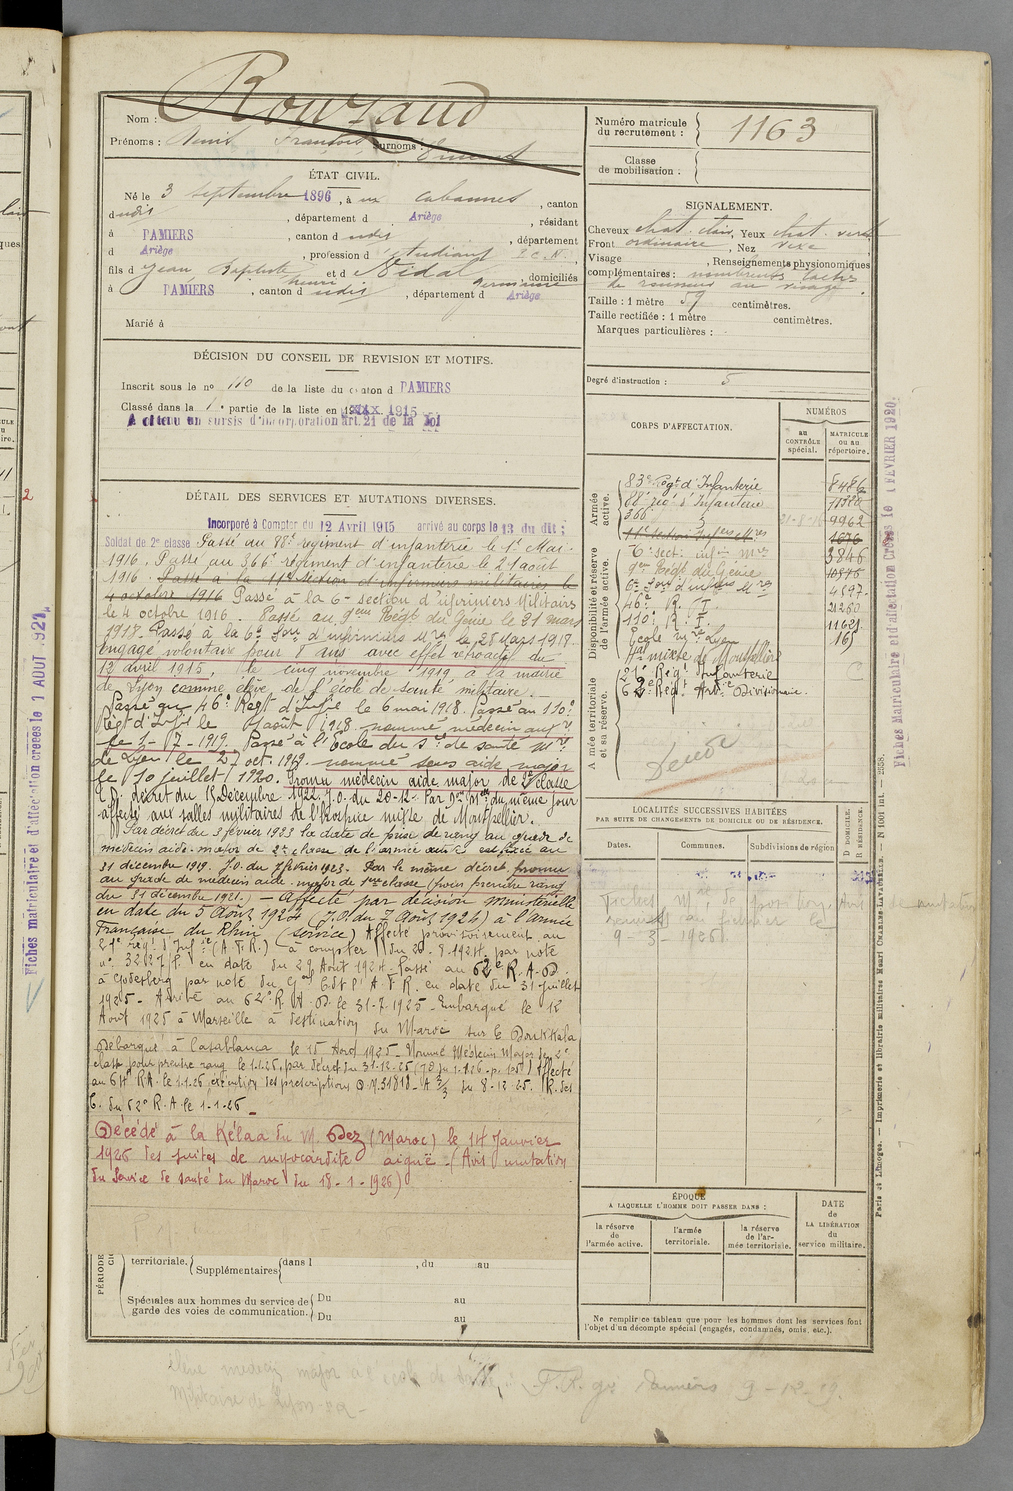 Rouzaud
Nom :
Prénoms : François Surnoms : Ernest
ÉTAT CIVIL.
Né le 3 septembre 1896, à ux Cabannes, canton
dudis, département d Ariège, résidant
à PAMIERS, canton d udis, département
d Ariège, profession d étudiant P.C.N.,
fils d Jean Baptiste Henri et d Vidal Germaine, domiciliés
à PAMIERS, canton d udis, département d Ariège
Marié à
DÉCISION DU CONSEIL DE REVISION ET MOTIFS.
Inscrit sous le no 110 de la liste du canton d PAMIERS
Classé dans la 1e partie de la liste en 1915
A obtenu un sursis d'incorporation art. 21 de la loi
DÉTAIL DES SERVICES ET MUTATIONS DIVERSES.
Incorporé à Compter du 12 Avril 1915 arrivé au corps le 13 du dit ;
Soldat de 2e classe Passé au 88e régiment d'infanterie le 1er Mai
1916. Passé au 366e régiment d'infanterie le 21 août
1916. Passé à la 11e Section d'infirmiers militaires le
4 octobre 1916 Passé à la 6e section d'infirmiers Militaires
le 4 octobre 1916. Passé au 9ème Régt du Génie le 21 mars
1918. Passé à la 6e Son d'infirmiers Mres le 28 Mars 1918.
Engagé volontaire pour 8 ans avec effet rétroactif du
12 avril 1915, le cinq novembre 1919 à la mairie
de Lyon comme élève de l'école de santé militaire.
Passé au 46e Régt d'Infie le 6 mai 1918. Passé au 110e
Régt d'Infie le août 1918 nommé médecin auxre
le 1-7-1919. Passé à l'École du Sce de santé Mre
de Lyon le 27 oct. 1919. nommé sous aide major
le 10 juillet 1920. Promu médecin aide major de 2e classe
décret du 15 Décembre 1922. J.O. du 20-12. Par Don Melle du même jour
affecté aux salles militaires de l'Hospice mixte de Montpellier.
Par décret du 3 février 1923 la date de prise de rang au grade de
médecin aide-major de 2e classe de l'armée active est fixée au
31 décembre 1919. J.O. du février 1923. Par le même décret promu
au grade de médecin aide-major de 1ère classe (pour prendre rang
du 31 décembre 1921.) — Affecté par décision ministérielle
en date du 5 Août 1924 (J.O. du 7 Août 1924) à l'armée
Française du Rhin (service) Affecté provisoirement au
21e Régt d'Infie (A.F.R.) à compter du 20.9.1924. par note
no 3227/P. en date du 29 Août 1924. Passé au 62e R.A.D.
à Godesberg par note du Gal Cdt l'A.F.R. en date du 31 Juillet
1925. Arrivé au 62e R.A.D. le 31-7-1925. Embarqué le 12
Août 1925 à Marseille à destination du Maroc sur le Doukkala
Débarqué à Casablanca le 15 Août 1925. Nommé Médecin Major de 2e
classe pour prendre rang le 1.1.26, par décret du 31-12-25 Affecté
au 64e R.A. le 1.1.26, exécution des prescriptions D.M. du 8-12-25. R. des
C. du 62e R.A. le 1-1-26
Décédé à la Kélaa du M. Dez (Maroc) le 14 Janvier
1926 des suites de myocardite aiguë. (Avis mutation
du Service de santé du Maroc du 18-1-1926)
PÉRIODE
territoriale. Supplémentaires dans l , du au
Spéciales aux hommes du service de garde des voies de communication. Du au
Du au
Numéro matricule du recrutement : 1163
Classe de mobilisation :
SIGNALEMENT.
Cheveux chat. clair, Yeux chat. verdt
Front ordinaire, Nez vexe
Visage , Renseignements physionomiques
complémentaires : nombreuses taches
de rousseur au visage.
Taille : 1 mètre 59 centimètres.
Taille rectifiée : 1 mètre centimètres.
Marques particulières :
Degré d'instruction : 5
CORPS D'AFFECTATION.
NUMÉROS
au CONTRÔLE spécial.
MATRICULE ou au répertoire.
Armée active.
Disponibilité et réserve de l'armée active.
Armée territoriale et sa réserve.
83e Régt d'Infanterie 8486
88e rég d'Infanterie
366e 9962
11e Section Infiers Mres
6e Sect. inf. Mres 3846
9ème Régt du Génie
6e Son d'infiers Mres 4597
46e R. I. 21250
110e R. I. 11621
École Lyon 165
Hal mixte de Montpellier
21e Régt Infanterie
62e Régt Artie Divisionnaire.
Décédé
LOCALITÉS SUCCESSIVES HABITÉES
PAR SUITE DE CHANGEMENTS DE DOMICILE OU DE RÉSIDENCE.
Dates. Communes. Subdivisions de région
D DOMICILE.
R RÉSIDENCE.
9-3-1926.
ÉPOQUE
A LAQUELLE L'HOMME DOIT PASSER DANS :
la réserve de l'armée active.
l'armée territoriale.
la réserve de l'armée territoriale.
DATE de LA LIBÉRATION du service militaire.
Ne remplir ce tableau que pour les hommes dont les services font
l'objet d'un décompte spécial (engagés, condamnés, omis, etc.).
Fiches Matriculaire et d'affectation créées le 1 FEVRIER 1920.
Fiches matriculaire et d'affectation créées le 1 AOUT 1921
Paris et Limoges. — Imprimerie et librairie militaires Henri CHARLES-LAVAUZELLE.
élève médecin major à l'école de Santé
Militaire de Lyon
Pamiers 9-12-19.